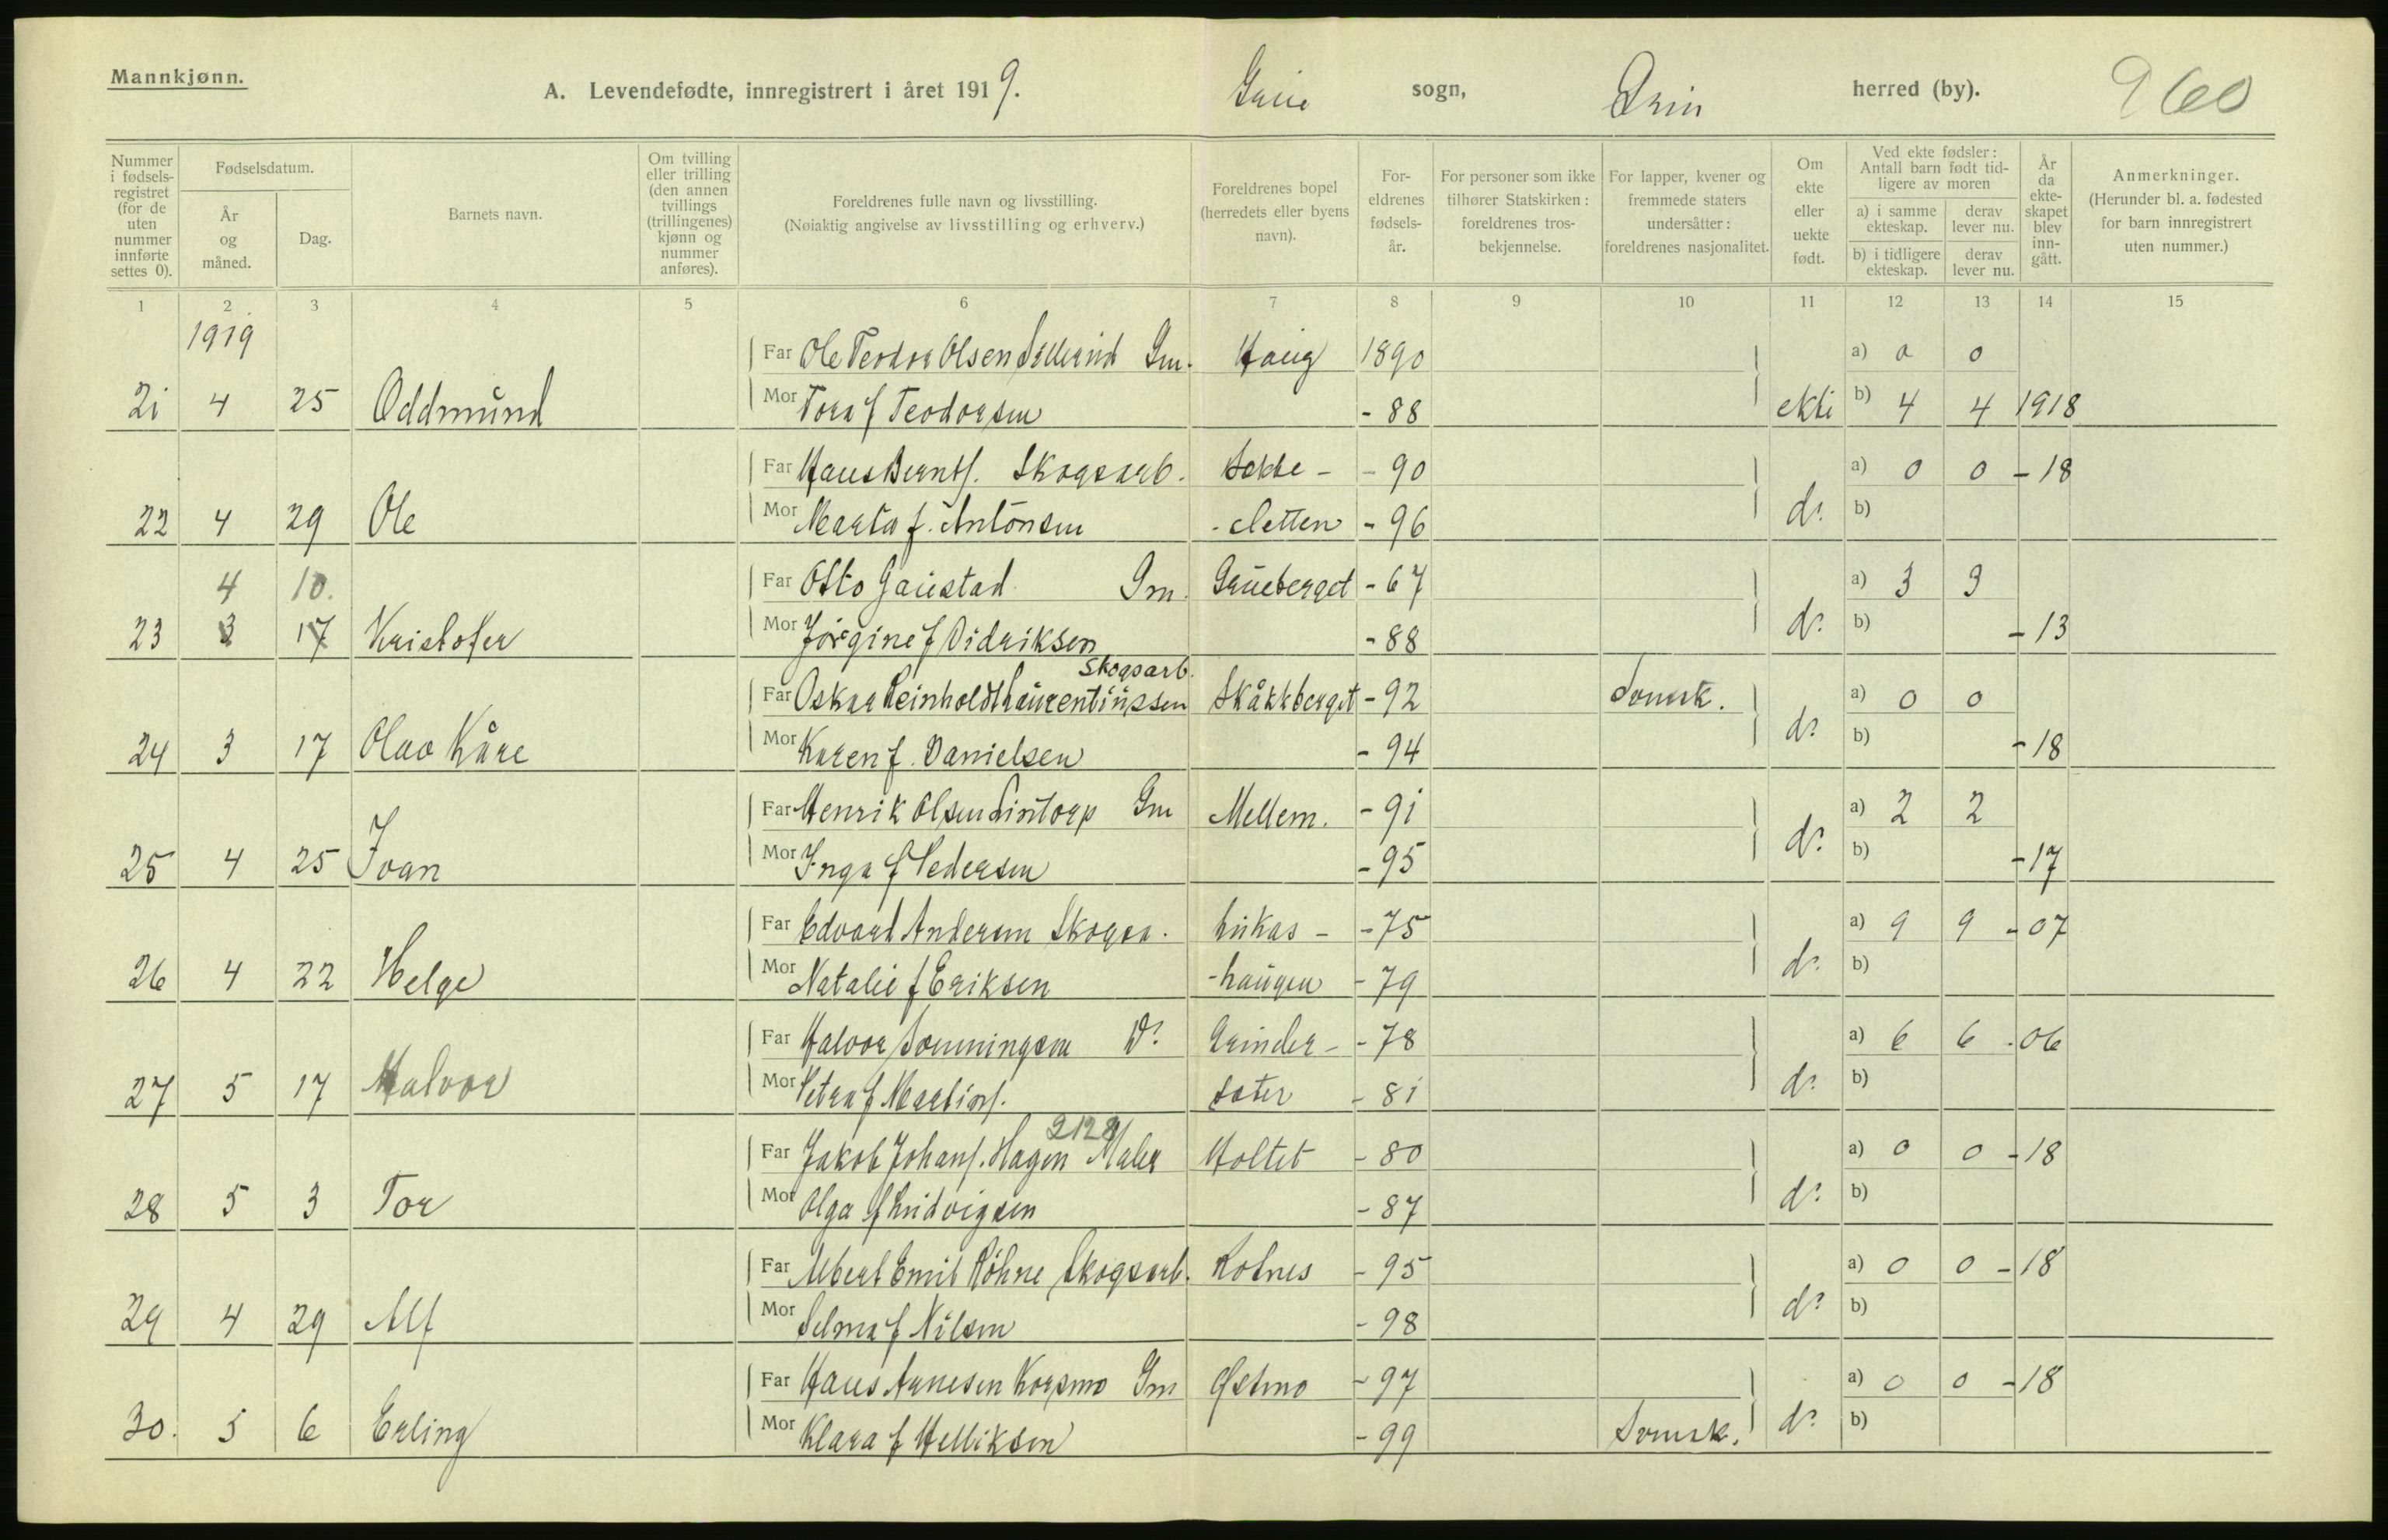 Mannkjønn.
A. Levendefødte, innregistrert i året 1919. Grue sogn, Grue herred (by). 960
Nummer i fødselsregistret (for de uten nummer innførte settes 0).
Fødselsdatum.
År og måned.
Dag.
Barnets navn.
Om tvilling eller trilling (den annen tvillings (trillingenes) kjønn og nummer anføres).
Foreldrenes fulle navn og livsstilling.
(Nøiaktig angivelse av livsstilling og erhverv.)
Foreldrenes bopel (herredets eller byens navn).
Foreldrenes fødselsår.
For personer som ikke tilhører Statskirken: foreldrenes trosbekjennelse.
For lapper, kvener og fremmede staters undersåtter: foreldrenes nasjonalitet.
Om ekte eller uekte født.
Ved ekte fødsler: Antall barn født tidligere av moren
a) i samme ekteskap. derav lever nu.
b) i tidligere ekteskap. derav lever nu.
År da ekteskapet blev inngått.
Anmerkninger.
(Herunder bl. a. fødested for barn innregistrert uten nummer.)
1 2 3 4 5 6 7 8 9 10 11 12 13 14 15
1919
Far Ole Teodor Olsen Gm. Haug 1890 a) 0 0
21 4 25 Oddmund Mor Tora f Teodorsen - 88 ekte b) 4 4 1918
Far Hans Bernts. Skogsarb. - - 90 a) 0 0 - 18
22 4 29 Ole Mor Marta f. Antonsen - sletten - 96 do b)
4 10. Far Otto Gaustad Gm. Grueberget - 67 a) 3 3
23 3 17 Kristofer Mor Jørgine f Didriksen - 88 do b) - 13
Skogsarb.
Far Oskar Reinholdt Laurentiussen Skåkkberget - 92 Svensk. a) 0 0
24 3 17 Olav Kåre Mor Karen f. Danielsen - 94 do b) - 18
Far Henrik Olsen Lintorp Gm Mellem. - 91 a) 2 2
25 4 25 Ivan Mor Inga f Pedersen - 95 do b) - 17
Far Edvard Andersen Skogsa. Lukas - - 75 a) 9 9 - 07
26 4 22 Helge Mor Natalie f Eriksen - haugen - 79 do b)
Far Halvor Sønningsen Do Grinder - - 78 a) 6 6 - 06
27 5 17 Halvor Mor Petra f Martins. sæter - 81 do b)
2128
Far Jakob Johans. Hagen Maler Holtet - 80 a) 0 0 - 18
28 5 3 Tor Mor Olga f Ludvigsen - 87 do b)
Far Albert Emil Röhne Skogsarb. Rotnes - 95 a) 0 0 - 18
29 4 29 Alf Mor Selma f Nilsen - 98 do b)
Far Hans Arnesen Korsmo Gm Østmo - 97 a) 0 0 - 18
30. 5 6 Erling Mor Klara f Helliksen - 99 Svensk. do b)